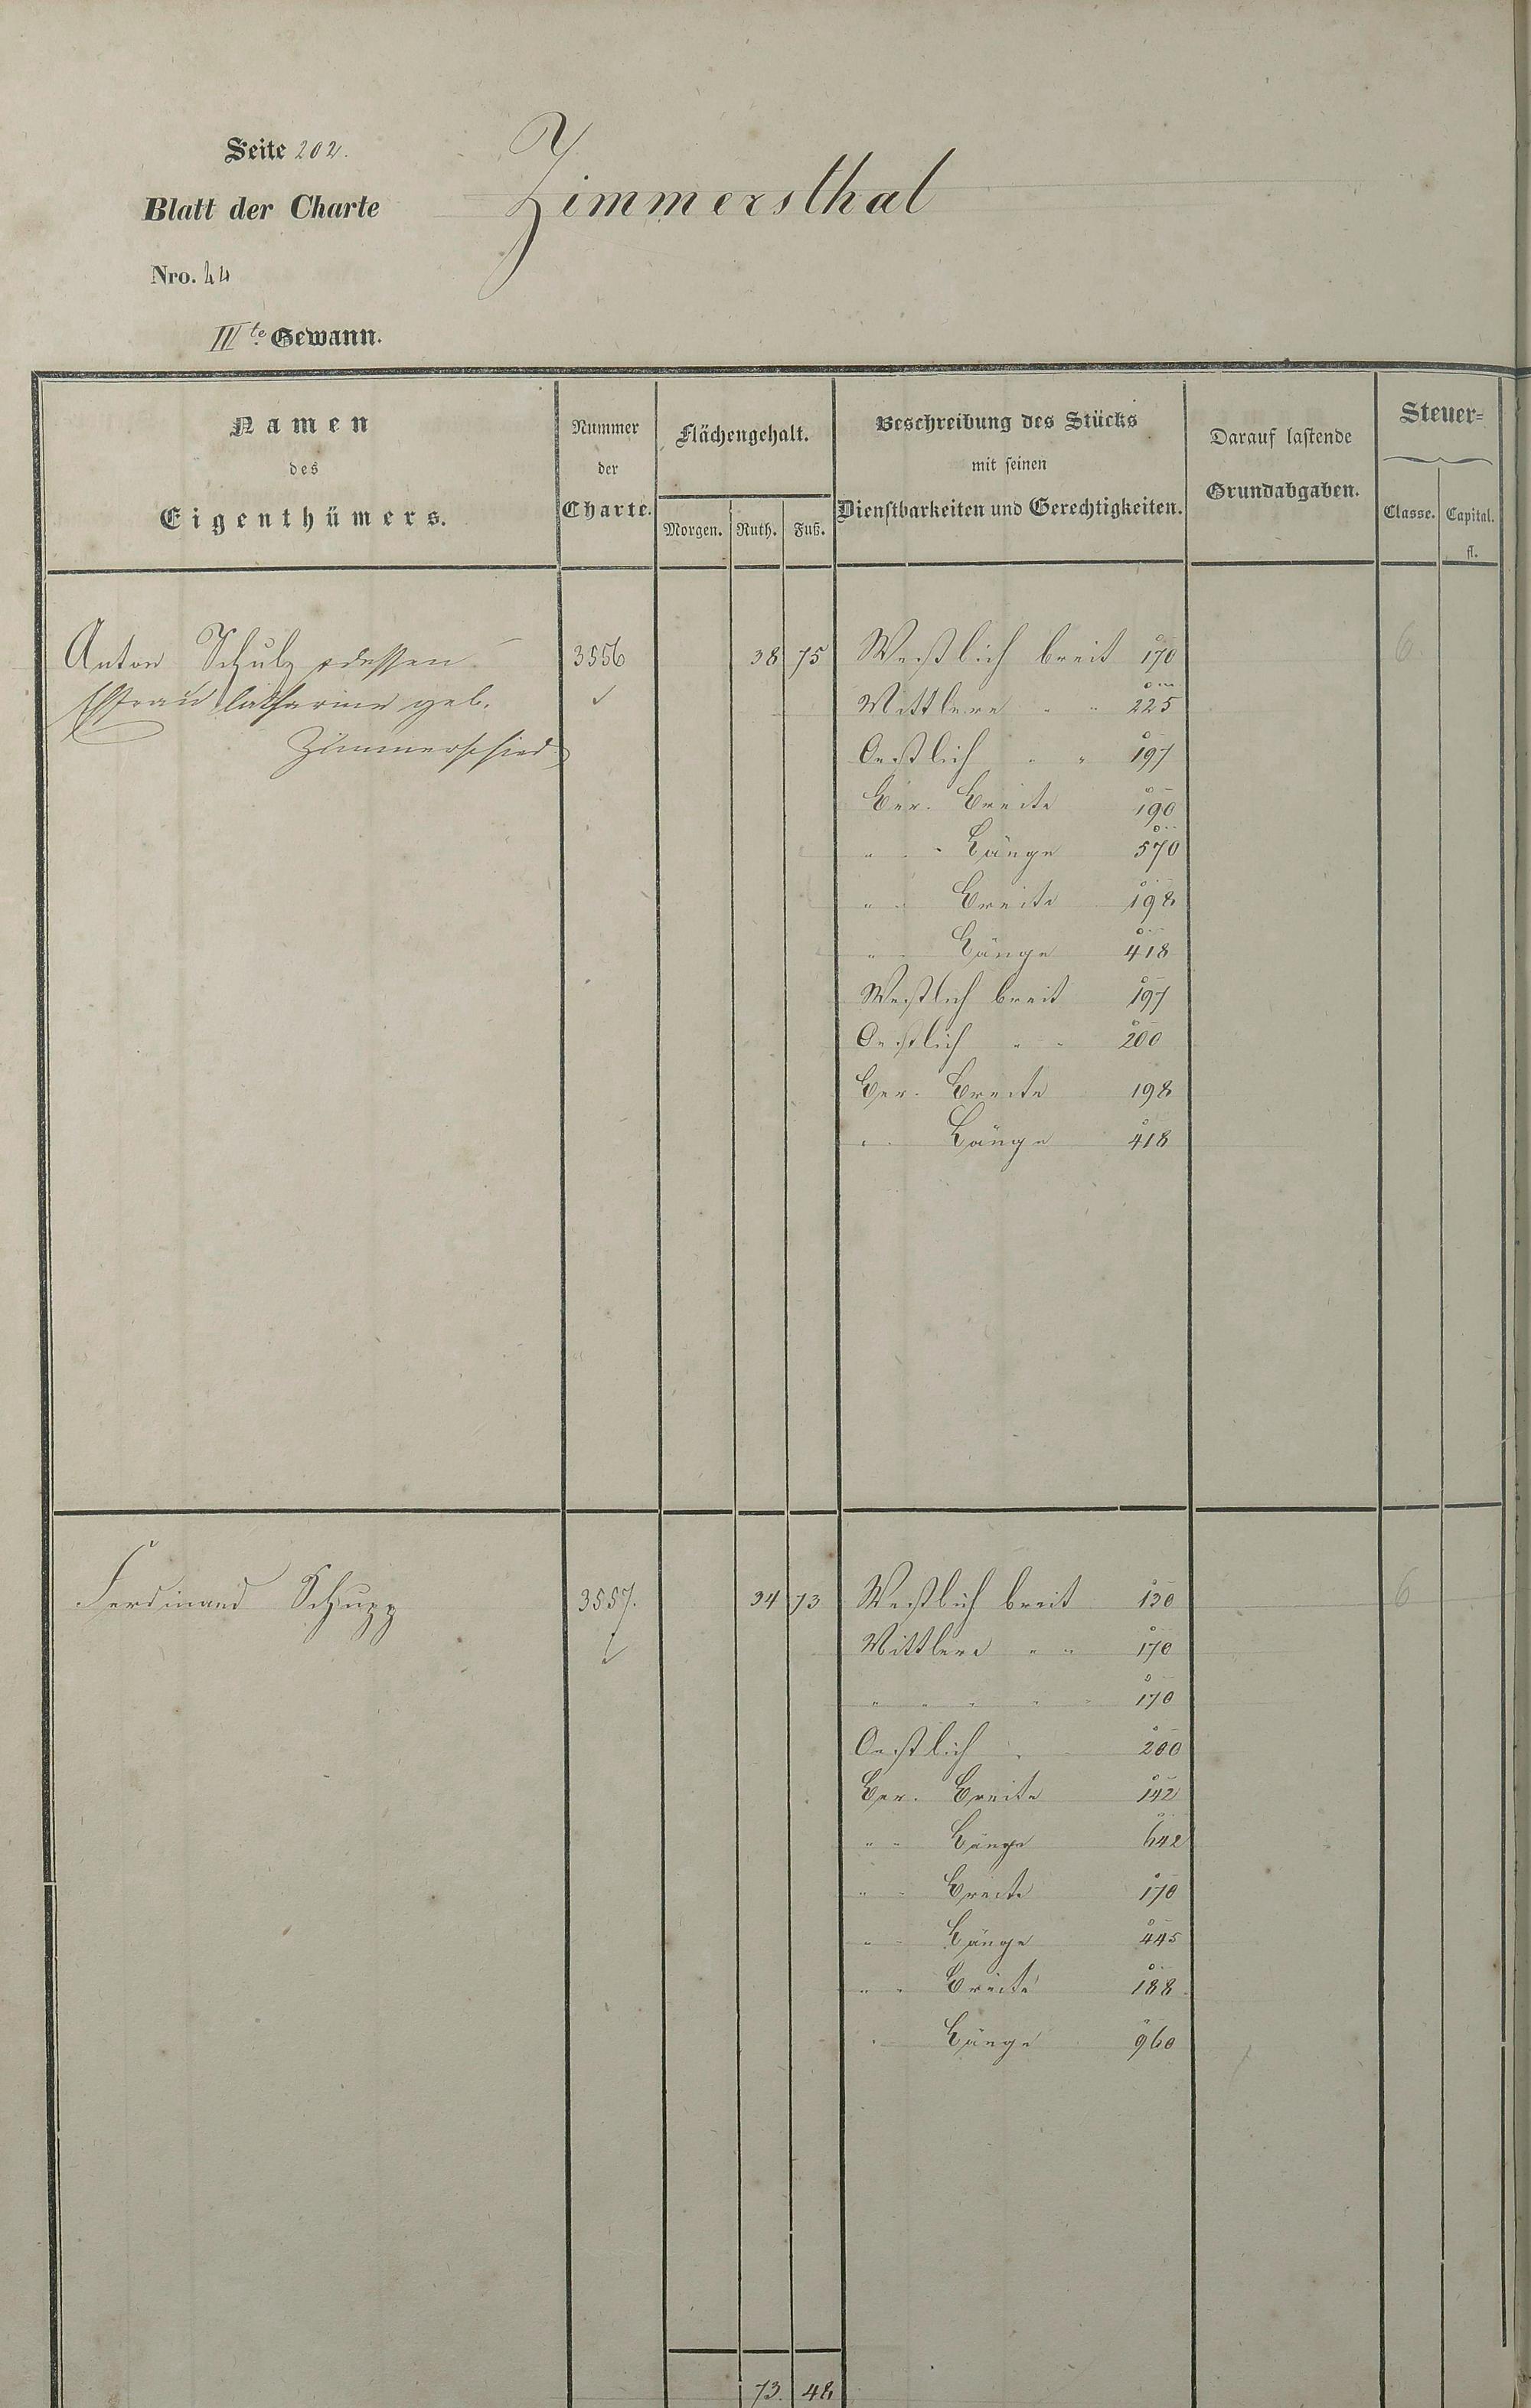 Seite 202.
Blatt der Charte
Zimmersthal
Nro. 44
IIte Gewann.
Namen
des
Eigenthümers.
Nummer
der
Charte.
Flächengehalt.
Morgen. Ruth. Fuß.
Beschreibung des Stücks
mit seinen
Dienstbarkeiten und Gerechtigkeiten.
Darauf lastende
Grundabgaben.
Steuer=
Classe. Capital.
fl.
Anton Schulz dessen 3556 38 75 Westlich breit 170 6
Ehfrau Catharine geb. Mittlere " " 225
Zimmerschied Oestlich " " 197
Ber. Breite 190
" " Länge 570
" " Breite 198
" " Länge 418
Westlich breit 197
Oestlich " " 200
Ber. Breite 198
" " Länge 418
Ferdinand Schupp 3557. 34 73 Westlich breit 130 6
Mittlere " " 170
" " " " " 170
Oestlich " 200
Ber. Breite 142
" " Länge 642
" " Breite 170
" " Länge 445
" " Breite 188
" Länge 960
73. 48